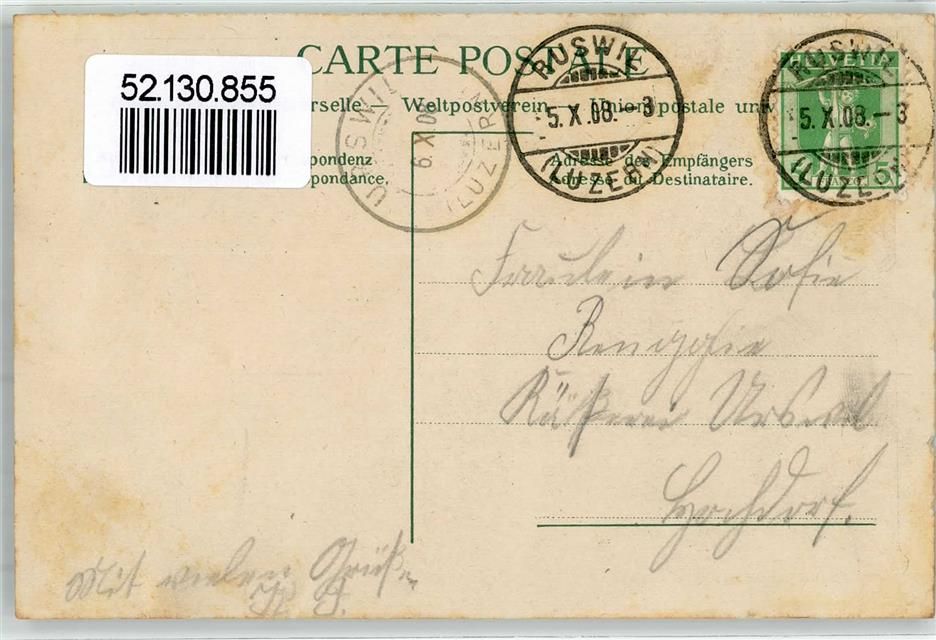 52.130.855
CARTE POSTALE
rselle — Weltpostverein Union postale univ
pondenz
pondance.
Adresse des Empfängers
Adresse du Destinataire.
URSWIL
6. X. 08
(LUZERN)
RUSWIL
5. X. 08. – 3
(LUZERN)
HELVETIA
5
RUSWIL
5. X. 08. – 3
(LUZERN)
Fräulein Sofie
Renggli
Käserei Urswil
Hochdorf.
Mit vielen Grüßen